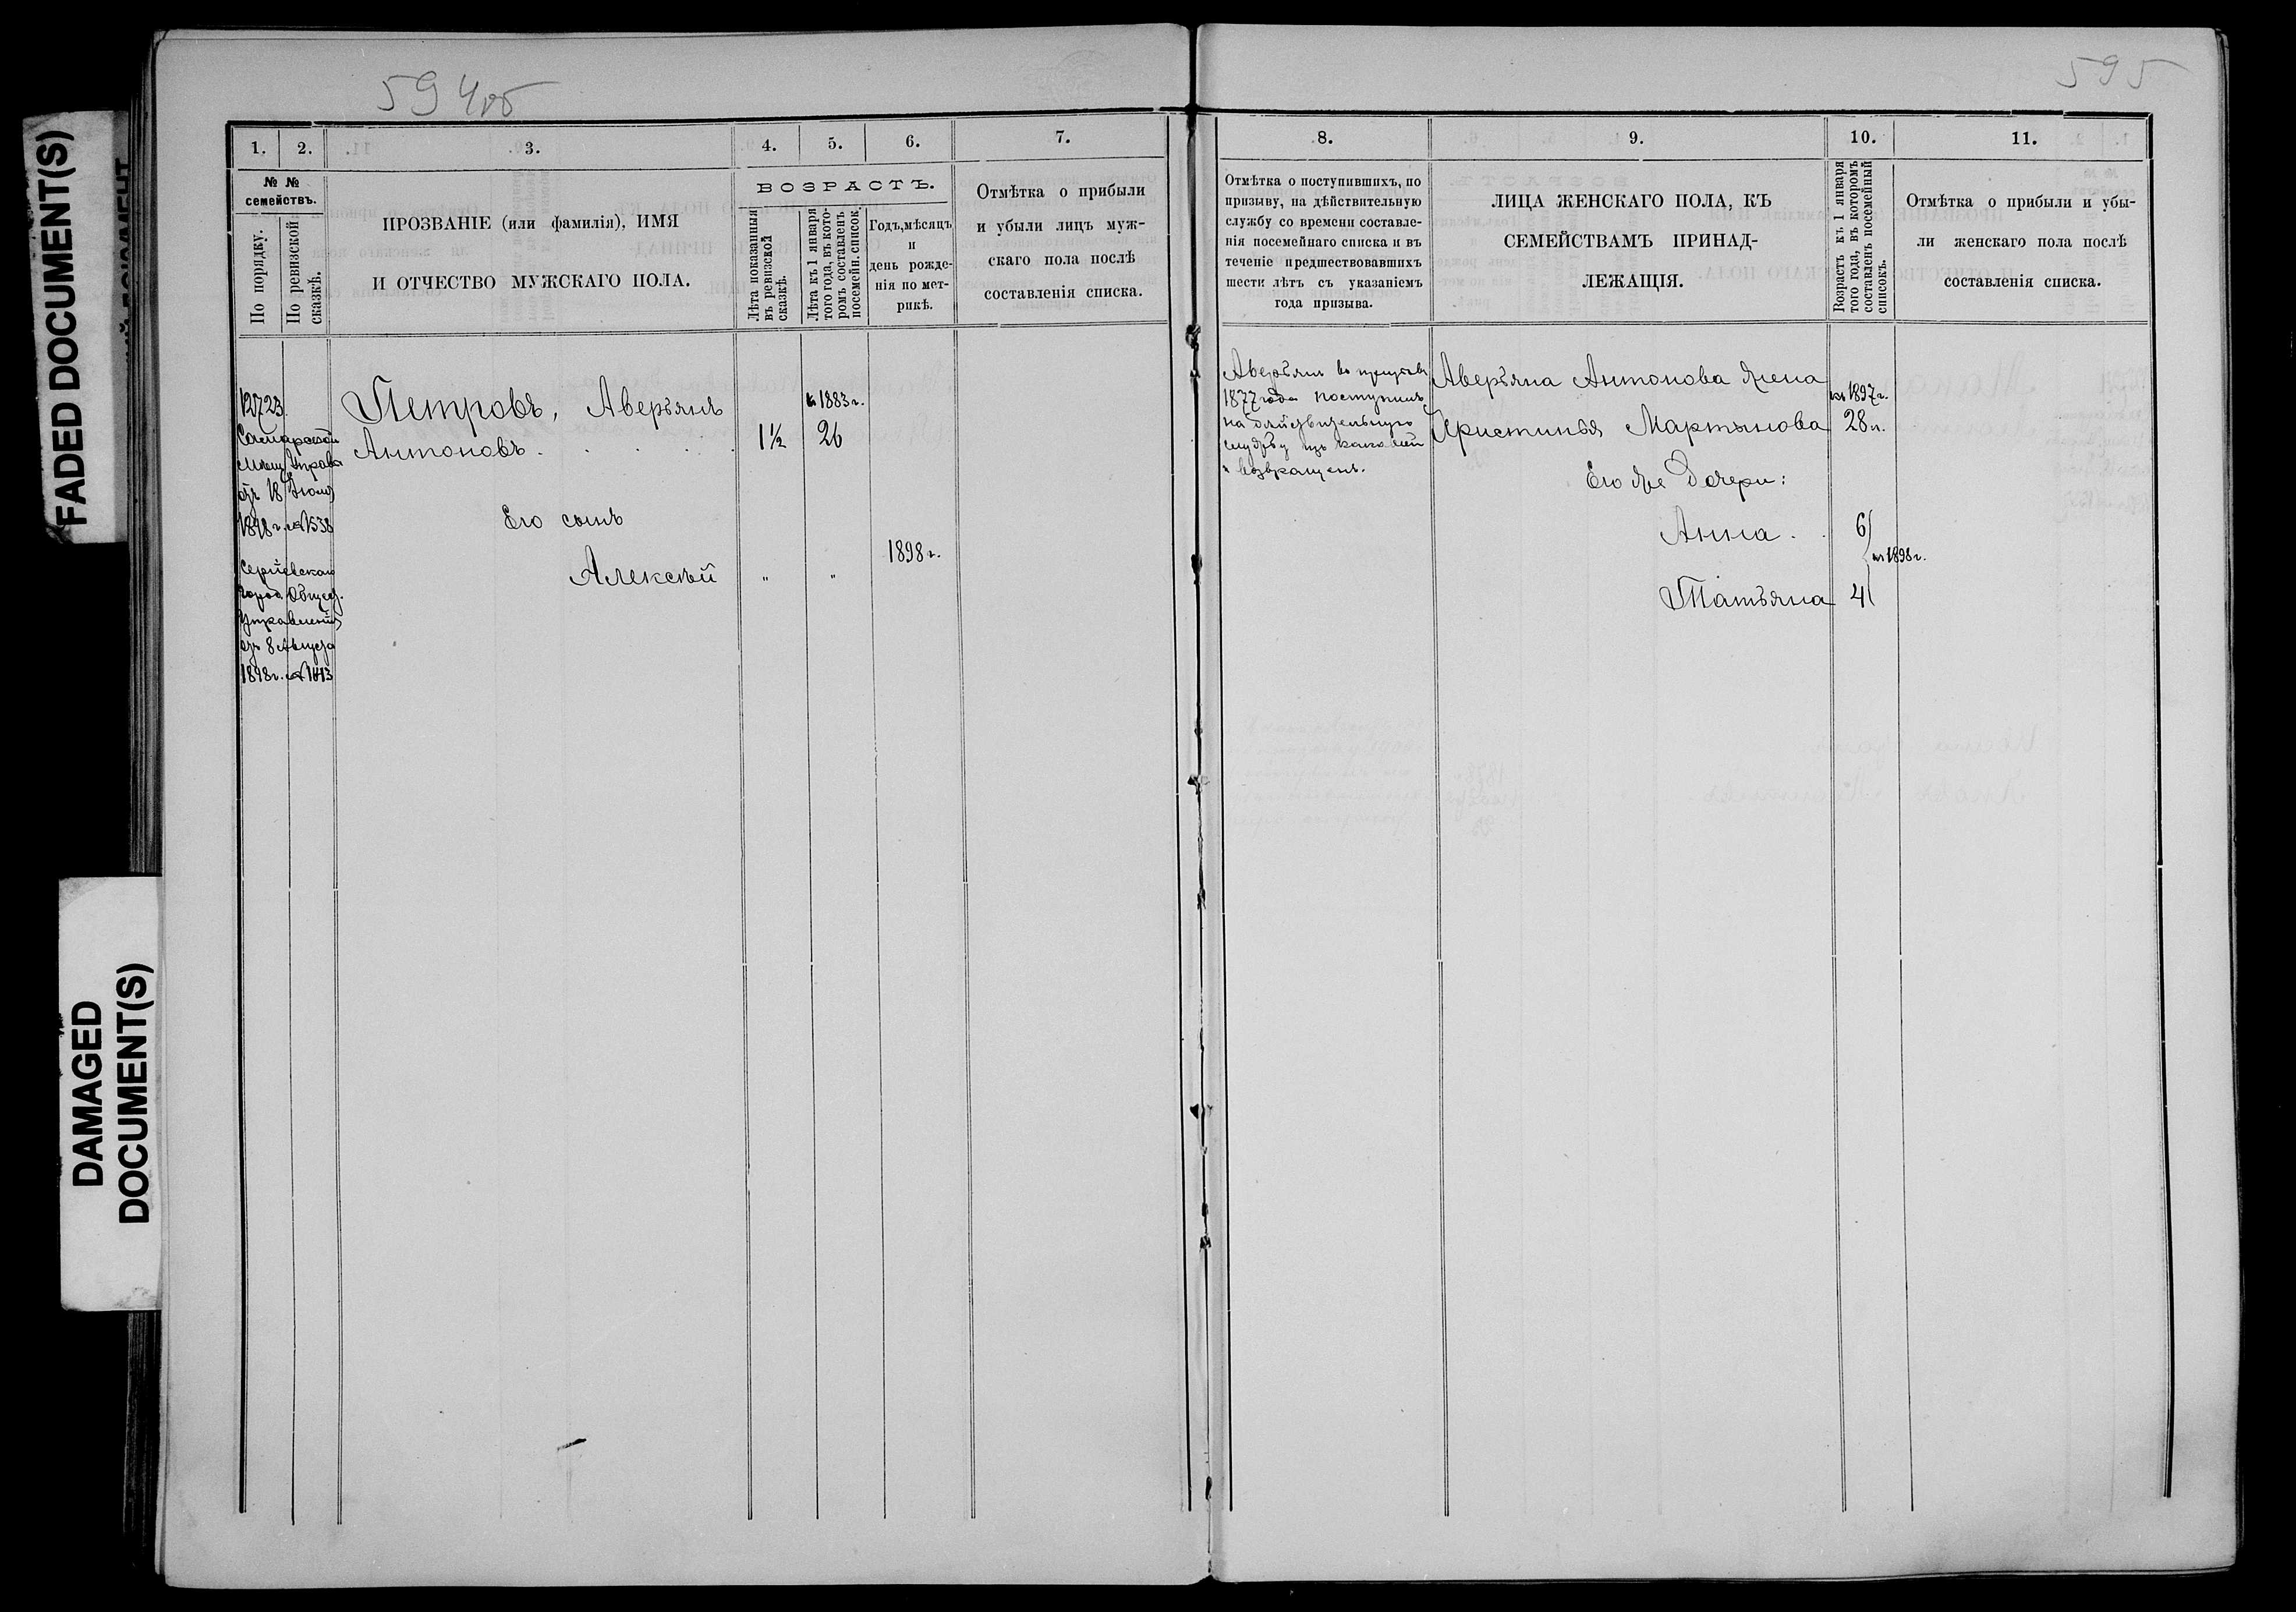 FADED DOCUMENT(S)
DAMAGED
DOCUMENT(S)
594об
1. 2. 3. 4. 5. 6. 7.
№ №
семействъ.
По порядку.
По ревизской
сказкѣ.
ПРОЗВАНІЕ (или фамилія), ИМЯ
И ОТЧЕСТВО МУЖСКАГО ПОЛА.
ВОЗРАСТЪ.
Лѣта показанныя
въ ревизской
сказкѣ.
Лѣта къ 1 января
того года, въ кото-
ромъ составленъ
посемейн. списокъ.
Годъ, мѣсяцъ
и
день рожде-
нія по мет-
рикѣ.
Отмѣтка о прибыли
и убыли лицъ муж-
скаго пола послѣ
составленія списка.
12723
Самарской
Мѣщ. Управы
отъ 18 Іюля
1898 г. № 1538
Сергіевскаго
Город. Общест.
Управленія
отъ 8 Августа
1898 г. № 1413
Петровъ, Аверьянъ
Антоновъ . . . . .
1½
къ 1883 г.
26
Его сынъ
Алексѣй
" "
1898 г.
595
8. 9. 10. 11.
Отмѣтка о поступившихъ, по
призыву, на дѣйствительную
службу со времени составле-
нія посемейнаго списка и въ
теченіе предшествовавшихъ
шести лѣтъ съ указаніемъ
года призыва.
ЛИЦА ЖЕНСКАГО ПОЛА, КЪ
СЕМЕЙСТВАМЪ ПРИНАД-
ЛЕЖАЩІЯ.
Возрастъ къ 1 января
того года, въ которомъ
составленъ посемейный
списокъ.
Отмѣтка о прибыли и убы-
ли женскаго пола послѣ
составленія списка.
Аверьянъ въ
1877 года поступилъ
на дѣйствительную
службу изъ каковой
и возвращенъ.
Аверьяна Антонова жена
Христинья Мартынова
къ 1897 г.
28 л.
Его же Дочери:
Анна . . 6
къ 1898 г.
Татьяна 4